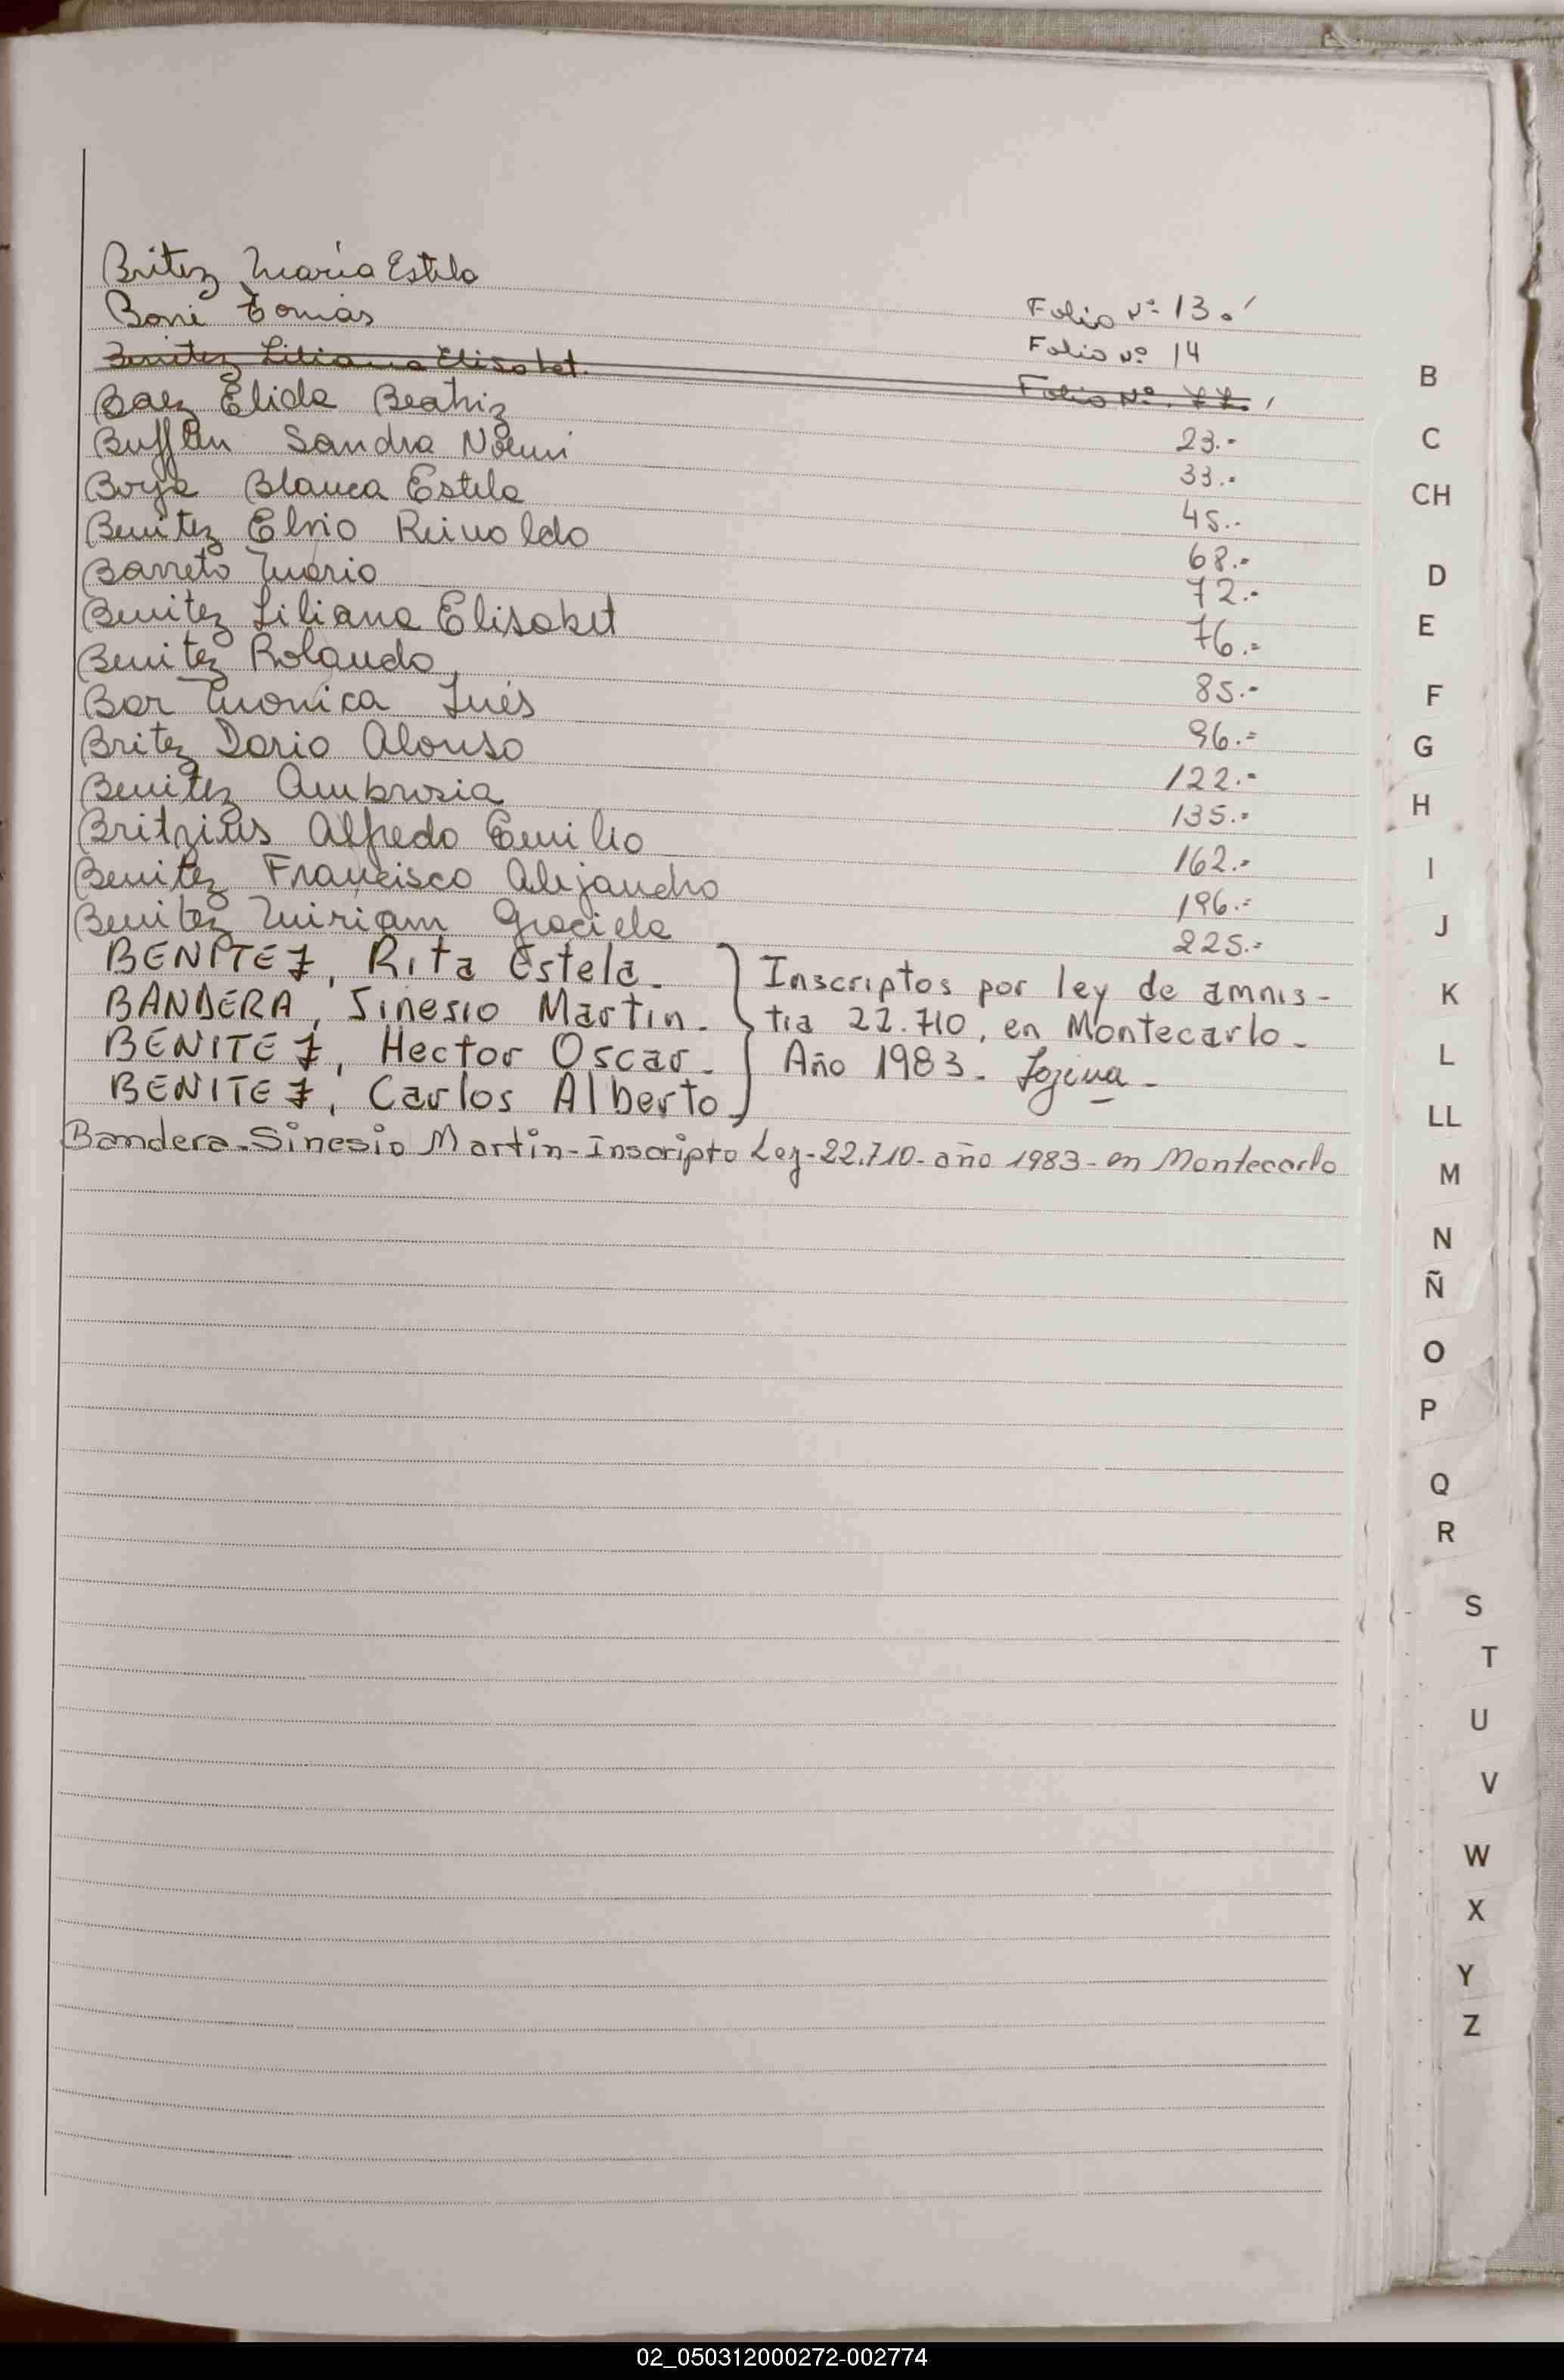 Britez María Estela Folio Nº 13.
Boni Tomás Folio Nº 14
Benitez Liliana Elisabet. Folio Nº. 77.
Baez Elida Beatriz 23.-
Sandra Noemi 33.-
Borja Blanca Estela 45.-
Benitez Elvio Reinoldo 68.-
Barreto Mario 72.-
Benitez Liliana Elisabet 76.=
Benitez Rolando 85.-
Bar Monica Inés 96.=
Britez Dario Alonso 122.-
Benitez Ambrosia 135.-
Britzius Alfredo Emilio 162.-
Benitez Francisco Alejandro 196.=
Benitez Miriam Graciela 225.=
BENITEZ, Rita Estela. Inscriptos por ley de amnis-
BANDERA, Sinesio Martin. tia 22.710, en Montecarlo.
BENITEZ, Hector Oscar. Año 1983.
BENITEZ, Carlos Alberto
Bandera-Sinesio Martin-Inscripto Ley-22.710-año 1983-en Montecarlo
B
C
CH
D
E
F
G
H
I
J
K
L
LL
M
N
Ñ
O
P
Q
R
S
T
U
V
W
X
Y
Z
02_050312000272-002774